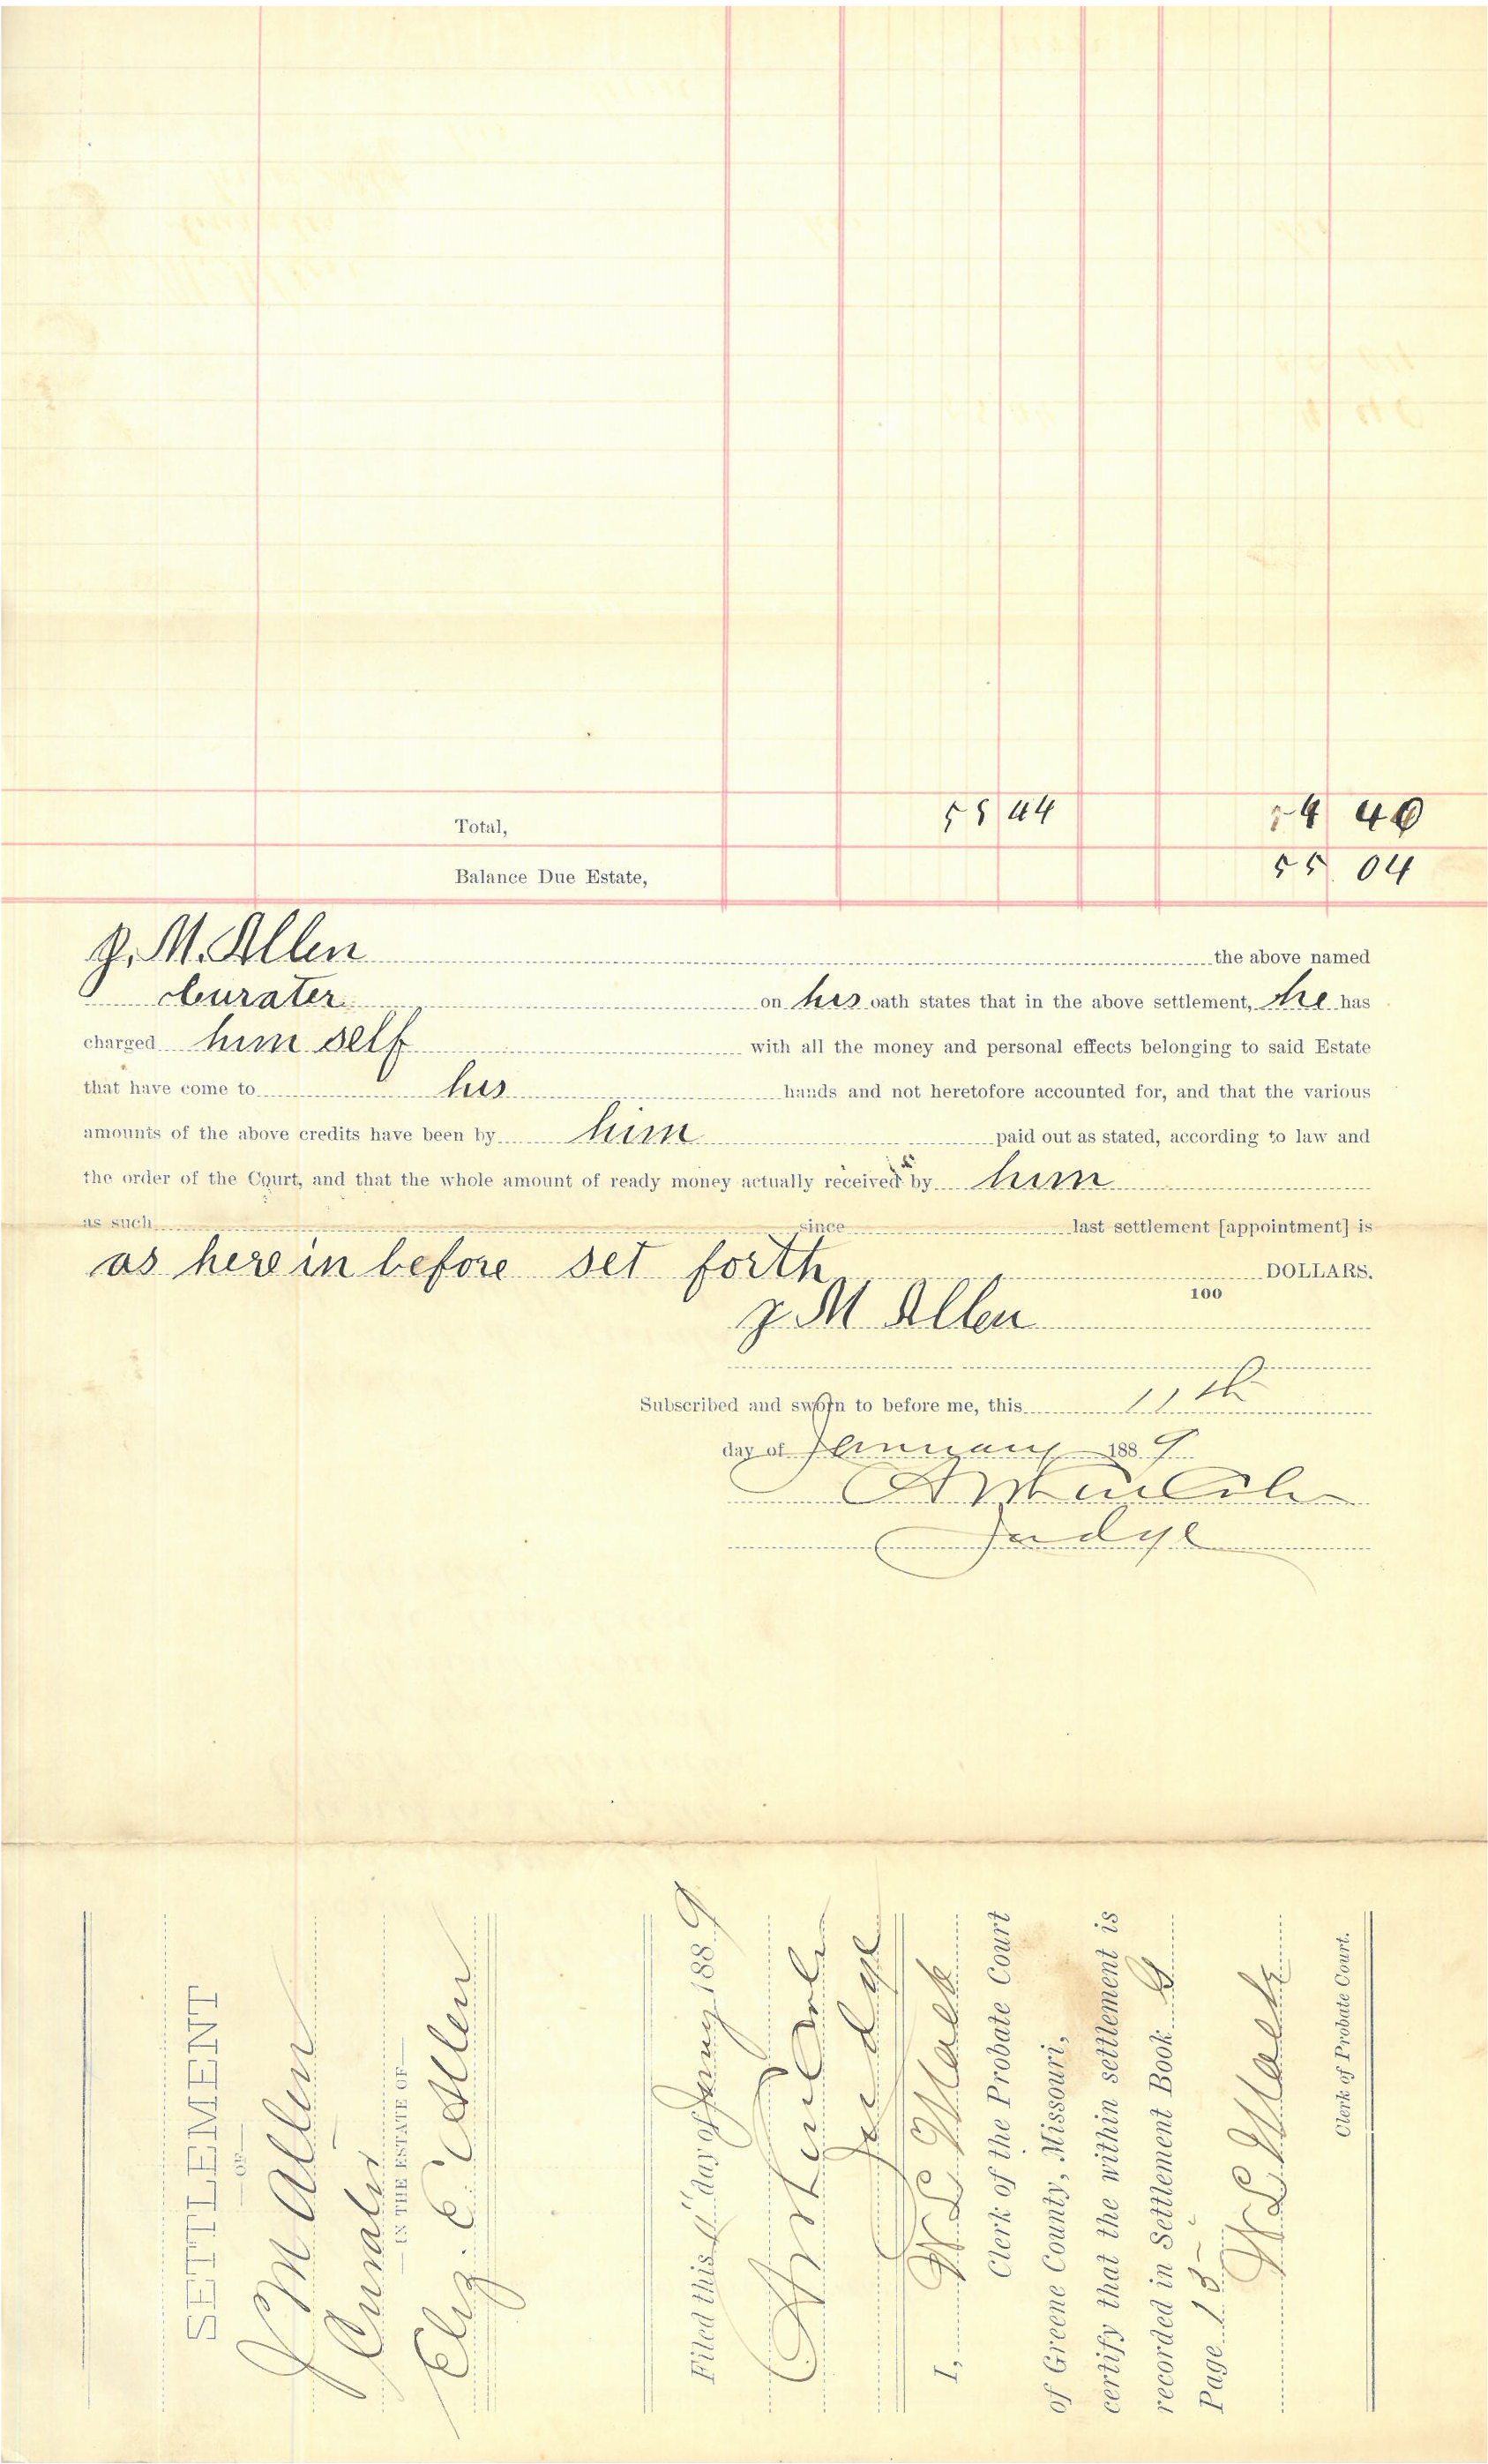 Total, 55 44 4 40
Balance Due Estate, 55 04
J. M. Allen the above named
Curater on his oath states that in the above settlement, he has
charged him self with all the money and personal effects belonging to said Estate
that have come to his hands and not heretofore accounted for, and that the various
amounts of the above credits have been by him paid out as stated, according to law and
the order of the Court, and that the whole amount of ready money actually received by him
as such since last settlement [appointment] is
as here in before set forth DOLLARS.
100
J M Allen
Subscribed and sworn to before me, this 11th
day of January 1889
Judge
SETTLEMENT
—OF—
J M Allen
Curator
—IN THE ESTATE OF—
Eliz. E Allen
Filed this 11" day of Jany 1889
Judge
I, W L Mack
Clerk of the Probate Court
of Greene County, Missouri,
certify that the within settlement is
recorded in Settlement Book G
Page 13
W L Mack
Clerk of Probate Court.